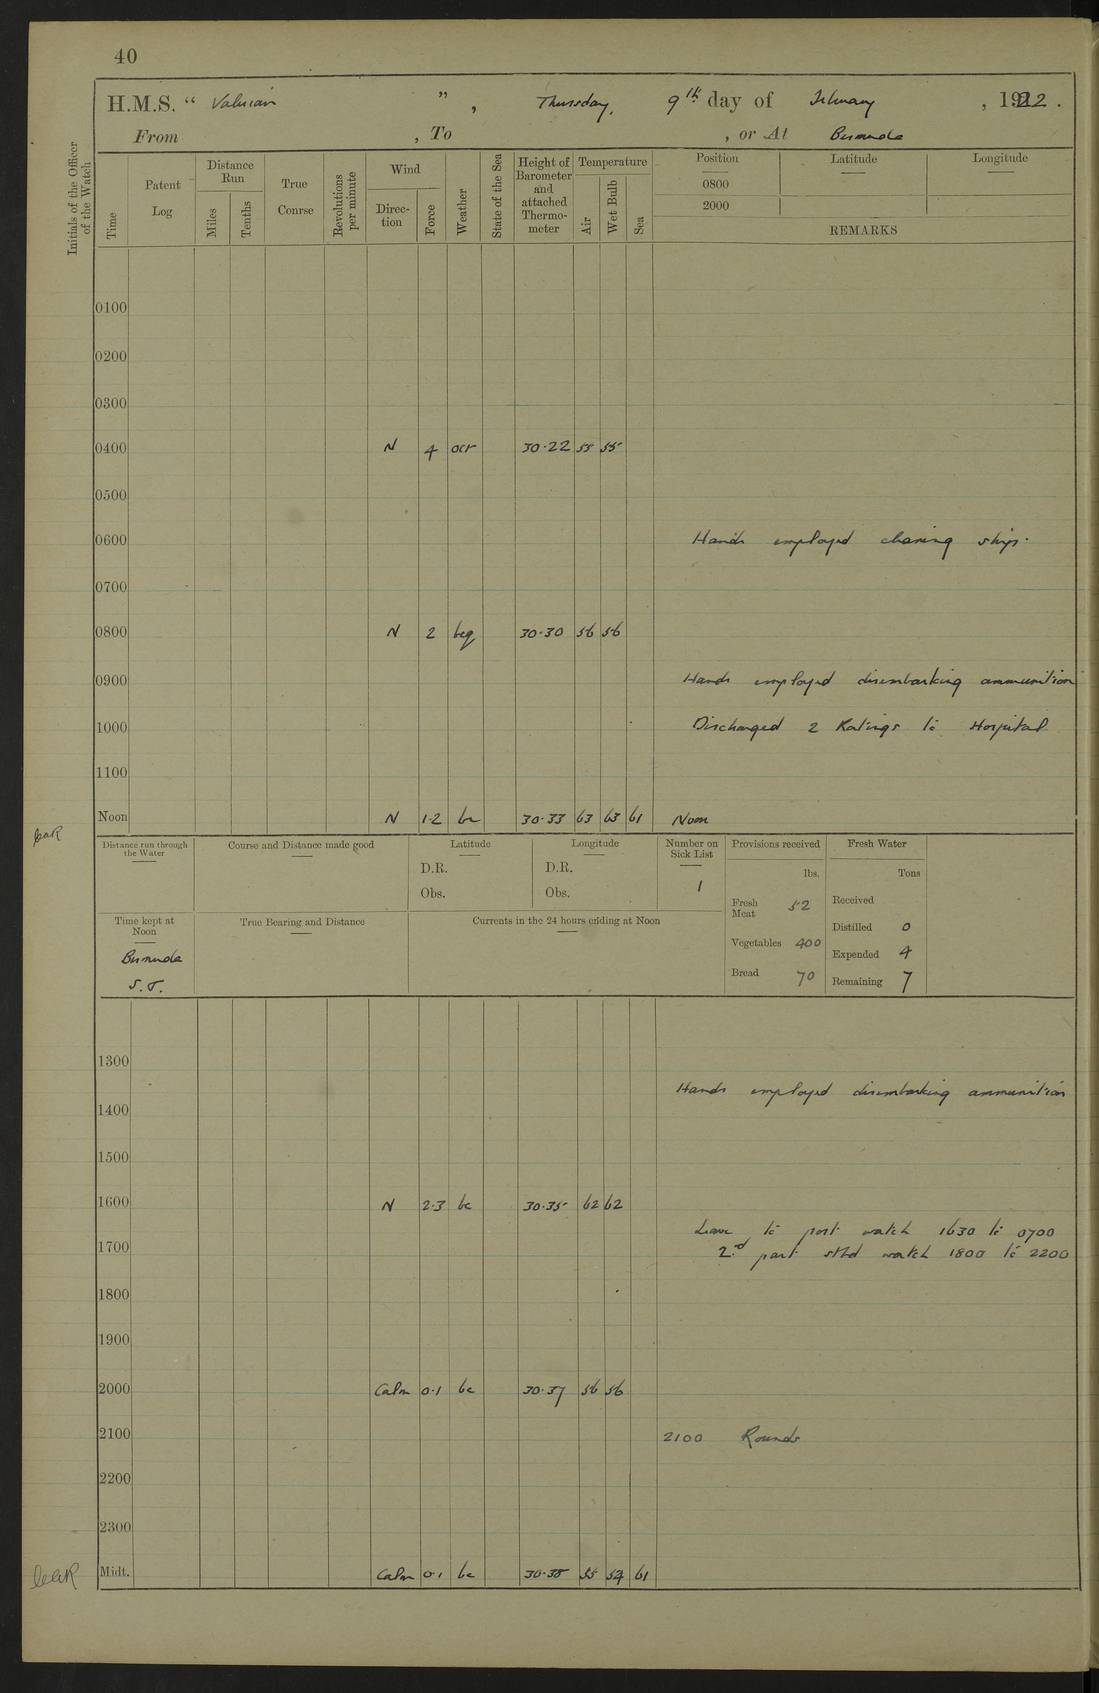 40
H.M.S. “ Valerian ” , Thursday, 9th day of February , 1922 .
From , To , or At Bermuda
Initials of the Officer of the Watch
Time
Patent Log
Distance Run
Miles
Tenths
True Course
Revolutions per minute
Wind
Direction
Force
Weather
State of the Sea
Height of Barometer and attached Thermometer
Temperature
Air
Wet Bulb
Sea
Position Latitude Longitude
0800
2000
REMARKS
0100
0200
0300
0400 N 4 ocr 30·22 55 55
0500
0600 Hands employed cleaning ship.
0700
0800 N 2 bcq 30·30 56 56
0900 Hands employed disembarking ammunition
1000 Discharged 2 Ratings to Hospital
1100
Noon N 1·2 bc 30·33 63 63 61 Noon
Distance run through the Water
Course and Distance made good
Latitude
D.R.
Obs.
Longitude
D.R.
Obs.
Number on Sick List
1
Provisions received
lbs.
Fresh Meat 52
Vegetables 400
Bread 70
Fresh Water
Tons
Received
Distilled 0
Expended 4
Remaining 7
Time kept at Noon
Bermuda
S.T.
True Bearing and Distance
Currents in the 24 hours ending at Noon
1300
Hands employed disembarking ammunition
1400
1500
1600 N 2·3 bc 30·35 62 62
Leave to port watch 1630 to 0700
1700 2nd part stbd watch 1800 to 2200
1800
1900
2000 Calm 0·1 bc 30·37 56 56
2100 2100 Rounds
2200
2300
Midt. Calm 0·1 bc 30·38 55 54 61